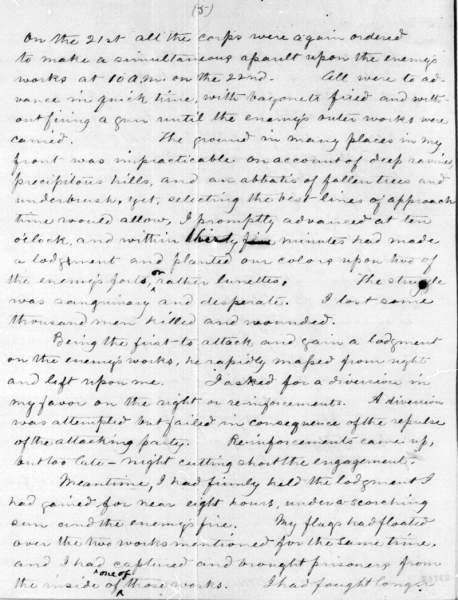 (5)
On the 21st all the corps were again ordered
to make a simultaneous assault upon the enemy's
works at 10 A.M. on the 22nd. All were to ad-
vance in quick time, with bayonets fixed and with-
out firing a gun until the enemy's outer works were
carried. The ground in many places in my
front was impracticable on account of deep ravines,
precipitous hills, and an abbatis of fallen trees and
underbrush, yet, selecting the best lines of approach
time would allow, I promptly advanced at ten
o'clock, and within thirty five minutes had made
a lodgment and planted our colors upon two of
the enemy's forts, or rather lunettes. The struggle
was sanguinary and desperate. I lost some
thousand men killed and wounded.
Being the first to attack and gain a lodgment
on the enemy's works, he rapidly massed from right
and left upon me. I asked for a diversion in
my favor on the right or reinforcements. A diversion
was attempted but failed in consequence of the repulse
of the attacking party. Reinforcements came up,
but too late – night cutting short the engagement.
Meantime, I had firmly held the lodgment I
had gained for near eight hours, under a scorching
sun and the enemy's fire. My flags had floated
over the two works mentioned for the same time,
and I had captured and brought prisoners from
the inside of one of those works. I had fought longer